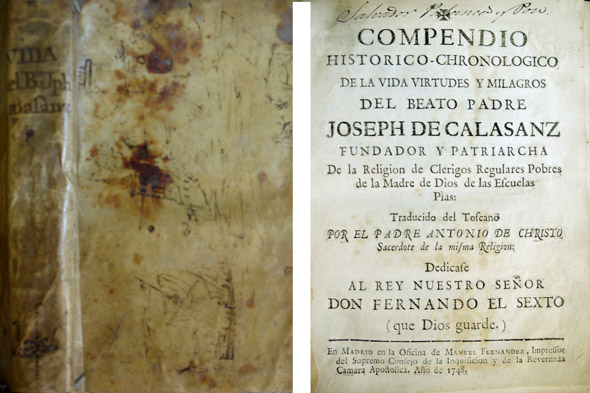 VIDA
del B. Jph
Calasanz
Salvador
COMPENDIO
HISTORICO-CHRONOLOGICO
DE LA VIDA VIRTUDES Y MILAGROS
DEL BEATO PADRE
JOSEPH DE CALASANZ
FUNDADOR Y PATRIARCHA
De la Religion de Clerigos Regulares Pobres
de la Madre de Dios de las Eſcuelas
Pias:
Traducido del Toſcano
POR EL PADRE ANTONIO DE CHRISTO
Sacerdote de la miſma Religion:
Dedicaſe
AL REY NUESTRO SEÑOR
DON FERNANDO EL SEXTO
(que Dios guarde.)
En MADRID en la Oficina de MANUEL FERNANDEZ, Impreſſor
del Supremo Conſejo de la Inquiſicion y de la Reverenda
Camara Apoſtolica. Año de 1748,